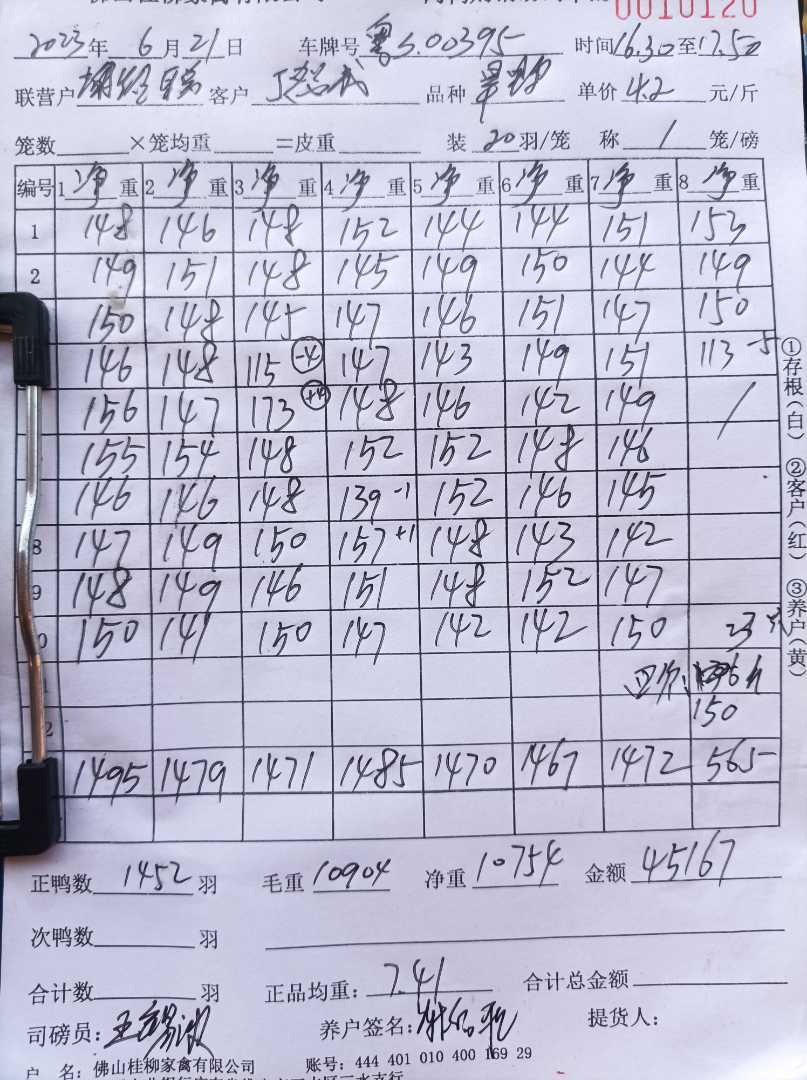 0010120
2023年 6月21日 车牌号 粤S.00395 时间16.30至17.50
联营户 客户 品种 单价 4.2 元/斤
笼数 ×笼均重 =皮重 装 20 羽/笼 称 1 笼/磅
编号 1 净 重 2 净 重 3 净 重 4 净 重 5 净 重 6 净 重 7 净 重 8 净 重
1 148 146 148 152 144 144 151 153
2 149 151 148 145 149 150 144 149
150 148 145 147 146 151 147 150
146 148 115 -4 147 143 149 151 113 -5
156 147 173 +4 148 146 142 149 /
155 154 148 152 152 148 146
146 146 148 139 -1 152 146 145
8 147 149 150 157 +1 148 143 142
9 148 149 146 151 148 152 147
0 150 141 150 147 142 142 150 23
1
2 150
1495 1479 1471 1485 1470 1467 1472 565
正鸭数 1452 羽 毛重 10904 净重 10754 金额 45167
次鸭数 羽
合计数 羽 正品均重: 7.41 合计总金额
司磅员: 养户签名: 提货人:
户 名: 佛山桂柳家禽有限公司 账号: 444 401 010 400 169 29
①存根(白) ②客户(红) ③养户(黄)